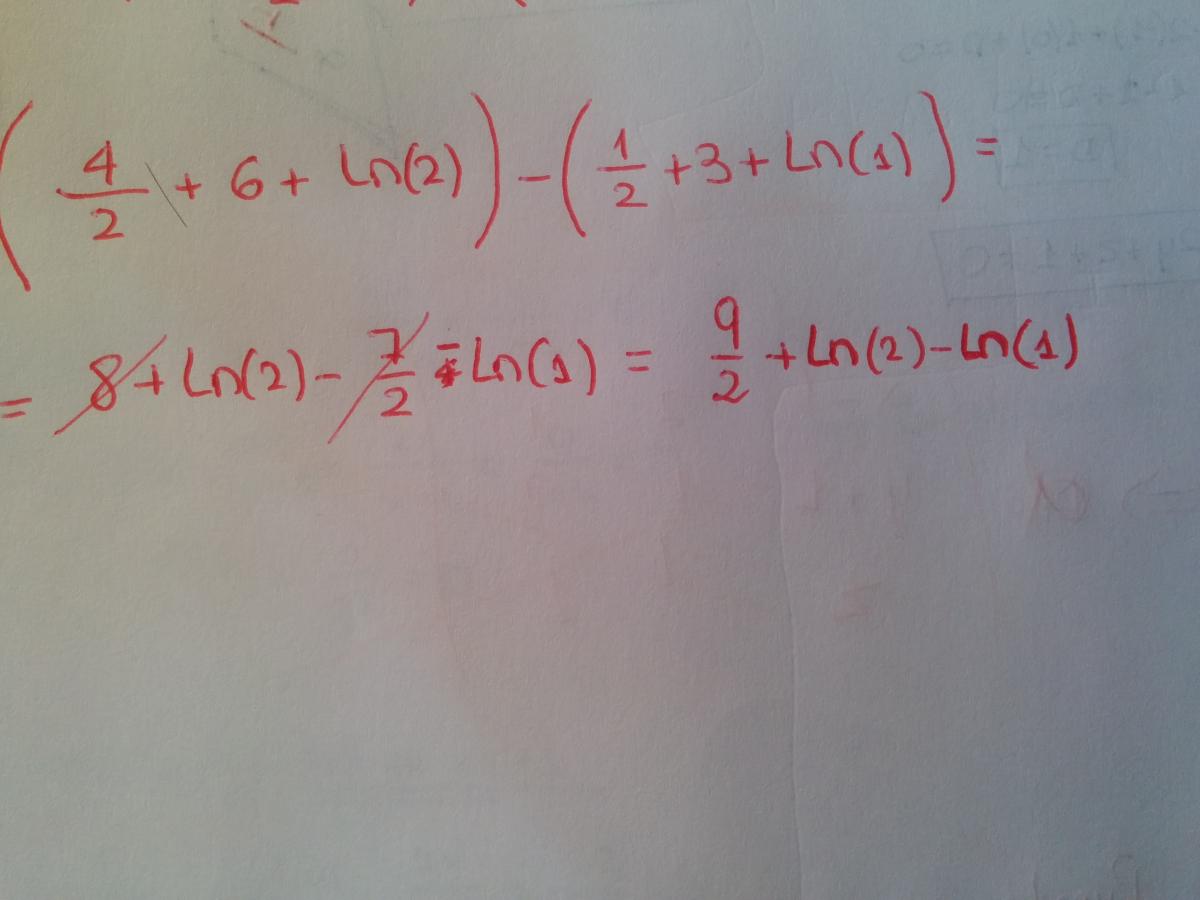 (4/2 + 6 + Ln(2)) - (1/2 + 3 + Ln(1)) =
= 8 + Ln(2) - 7/2 - Ln(1) = 9/2 + Ln(2) - Ln(1)